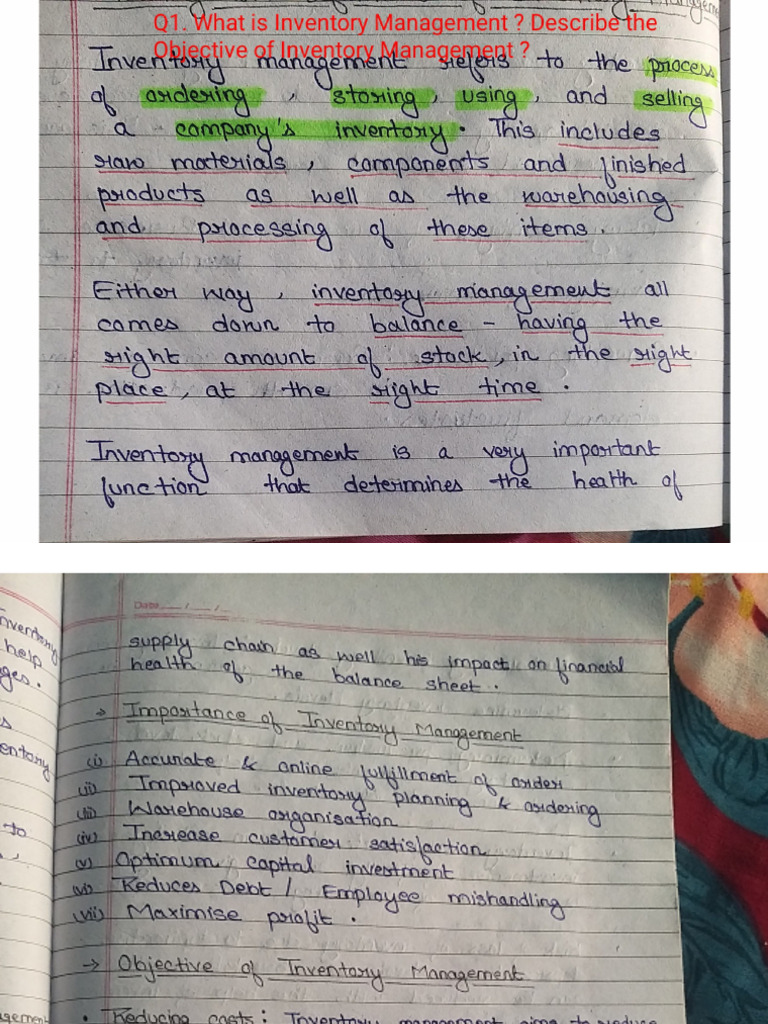 Q1. What is Inventory Management ? Describe the
Objective of Inventory Management ?
Inventory management refers to the process
of ordering, storing, using, and selling
a company's inventory. This includes
raw materials, components and finished
products as well as the warehousing
and processing of these items.
Either way, inventory management all
comes down to balance - having the
right amount of stock, in the right
place, at the right time.
Inventory management is a very important
function that determines the health of
Date
supply chain as well his impact on financial
health of the balance sheet.
→ Importance of Inventory Management
(i) Accurate & online fulfillment of order
(ii) Improved inventory planning & ordering
(iii) Warehouse organisation
(iv) Increase customer satisfaction
(v) Optimum capital investment
(vi) Reduces Debt / Employee mishandling
(vii) Maximise profit.
→ Objective of Inventory Management
• Reducing costs: Inventory management aims to reduce
Inventory
help
ges.
entory
to
agement